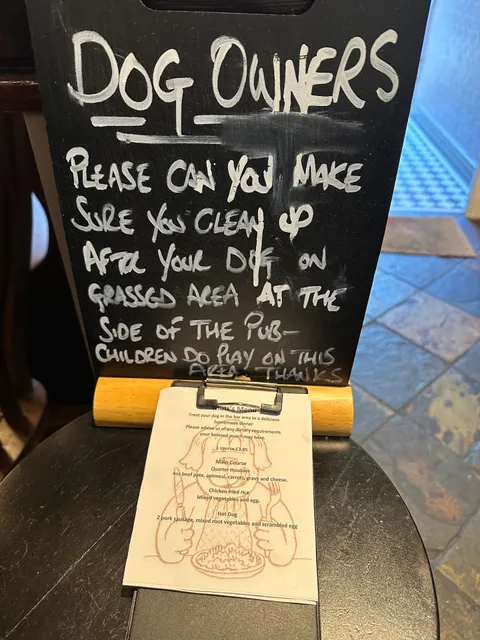 DOG OWNERS
PLEASE CAN YOU MAKE
SURE YOU CLEAN UP
AFTER YOUR DOG ON
GRASSED AREA AT THE
SIDE OF THE PUB-
CHILDREN DO PLAY ON THIS
AREA THANKS
Menu
Treat your dog in the bar area to a delicious
homemade dinner
Please advise us of any dietary requirements
your beloved pooch may have.
1 course £3.95
Main Course
Quarter Hounder
4oz beef pate, oatmeal, carrots, gravy and cheese.
Chicken fried rice
Mixed vegetables and egg.
Hot Dog
2 pork sausage, mixed root vegetables and scrambled egg